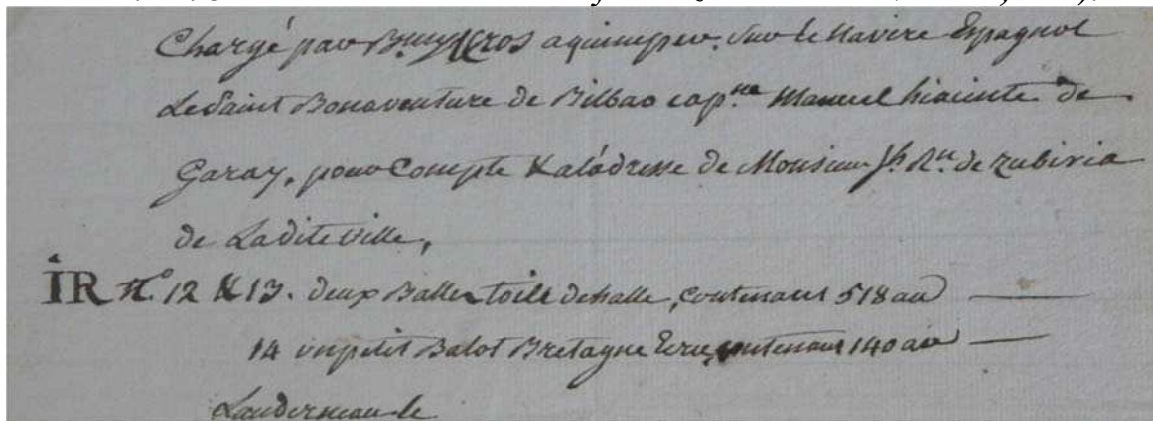 Chargé par Bmy Kros a quimper. Sur le Navire Espagnol
Le Saint Bonaventure de Bilbao capne Manuel hiacinte de
Garay, pour Compte & a l'adresse de Monsieur Jh. Rn. de zubiria
de Ladite ville,
IR No. 12 & 13. deux Balles toile de halle, contenant 518 au
14 un petit Balot Bretagne Ecrue, contenant 140 au
Landerneau le